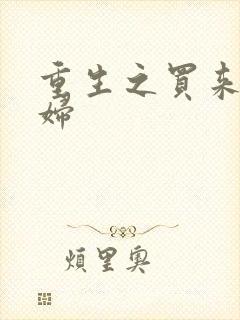 重生之買来
婦
煩里奧